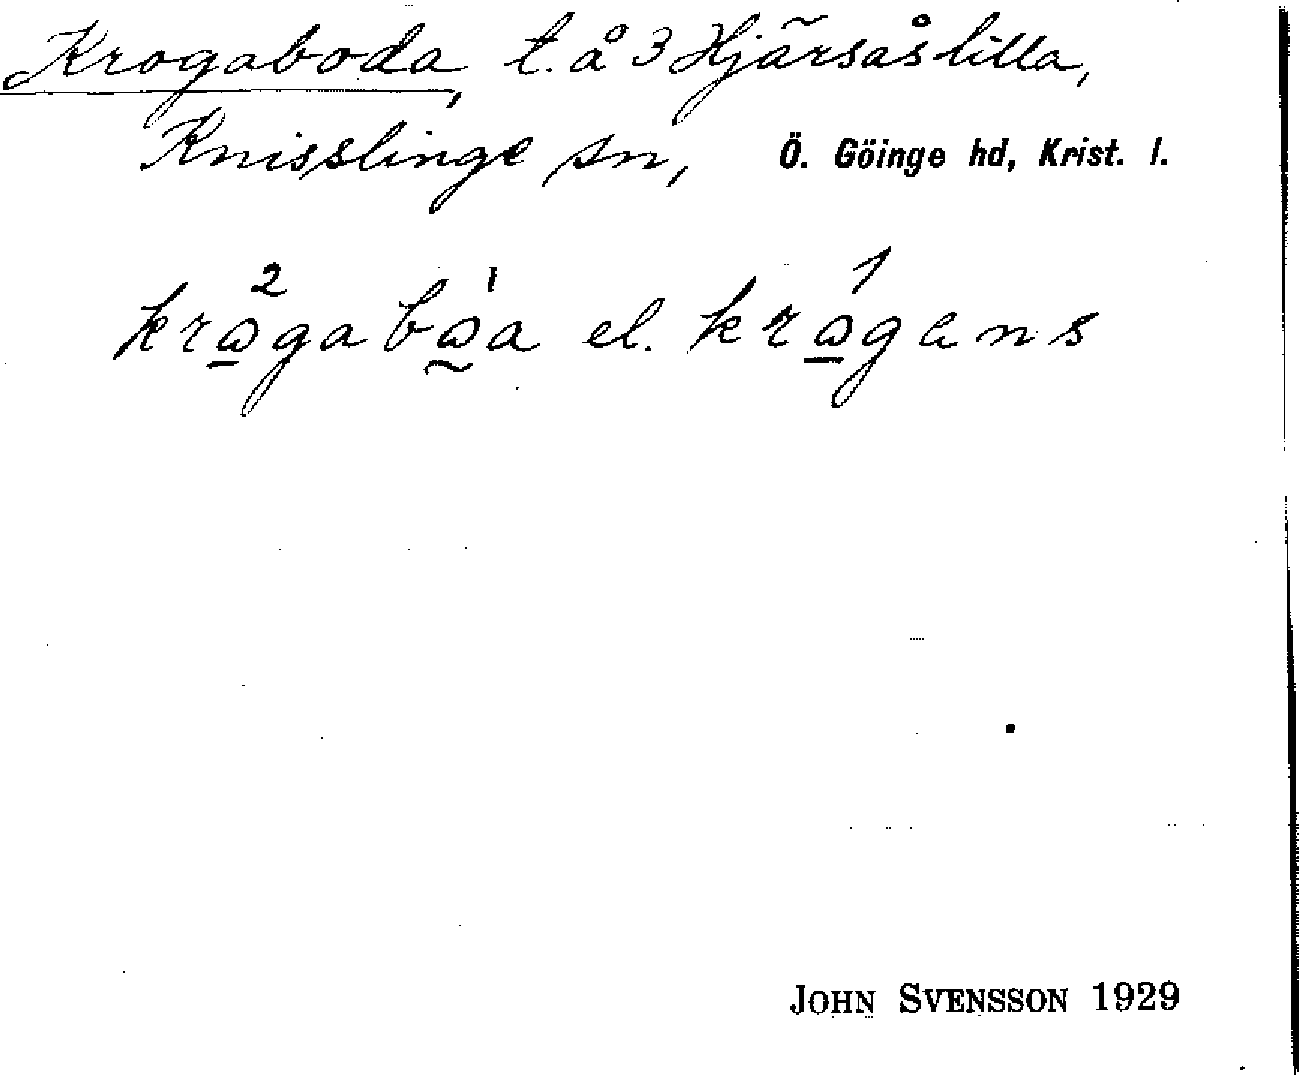 Krogaboda, t. å 3 Hjärsås lilla,
Knisslinge sn, Ö. Göinge hd, Krist. l.
krɷ̱²gabɷ̰¹a el. krɷ̱́gans
JOHN SVENSSON 1929